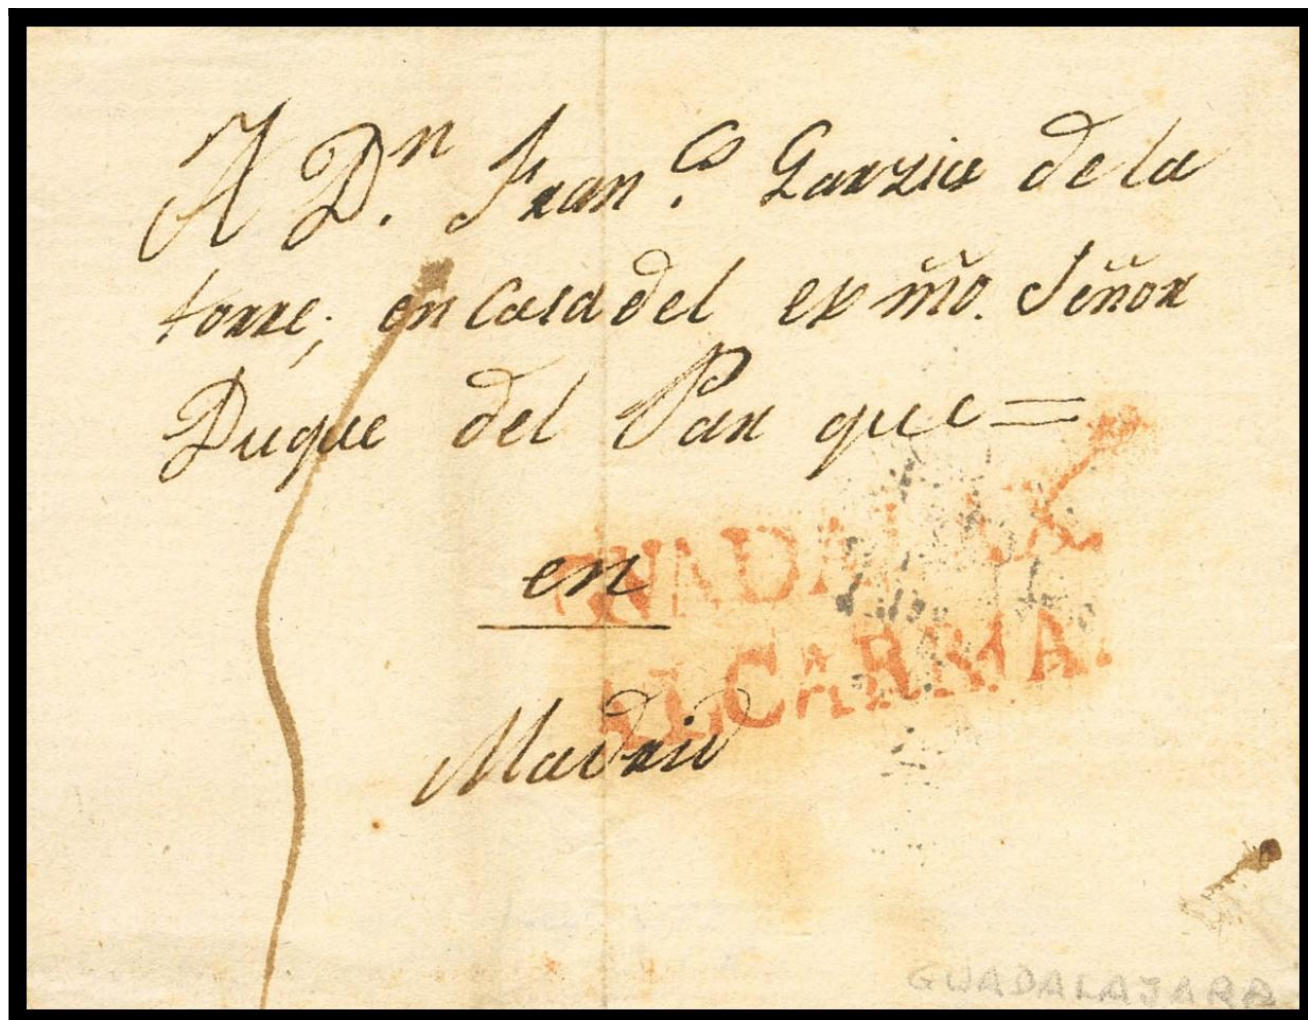 A D.n Fran.co Garzia de la
torre; en Casa del exmño. Señor
Duque del Parque=
en
Madrid
ALCARRIA.
GUADALAJARA